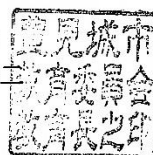 豊見城市
教育委員会
教育長之印